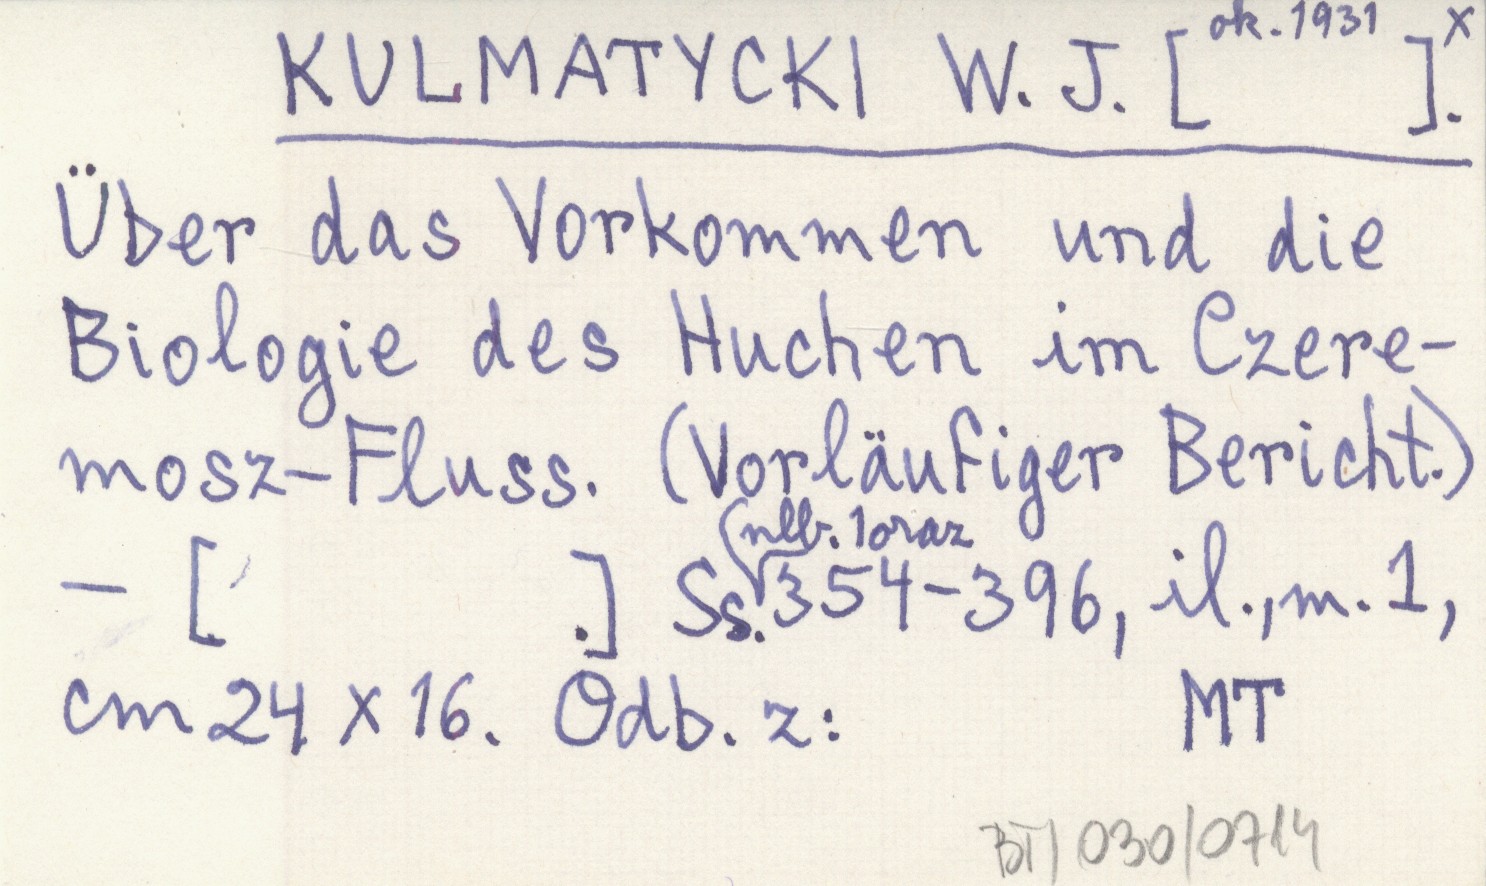 KULMATYCKI W. J. [ok. 1931].x
Über das Vorkommen und die
Biologie des Huchen im Czere-
mosz-Fluss. (Vorläufiger Bericht.)
nlb. 1 oraz
- [ .] Ss. 354-396, il., m. 1,
cm 24 x 16. Odb. z: MT
BT/030/0714